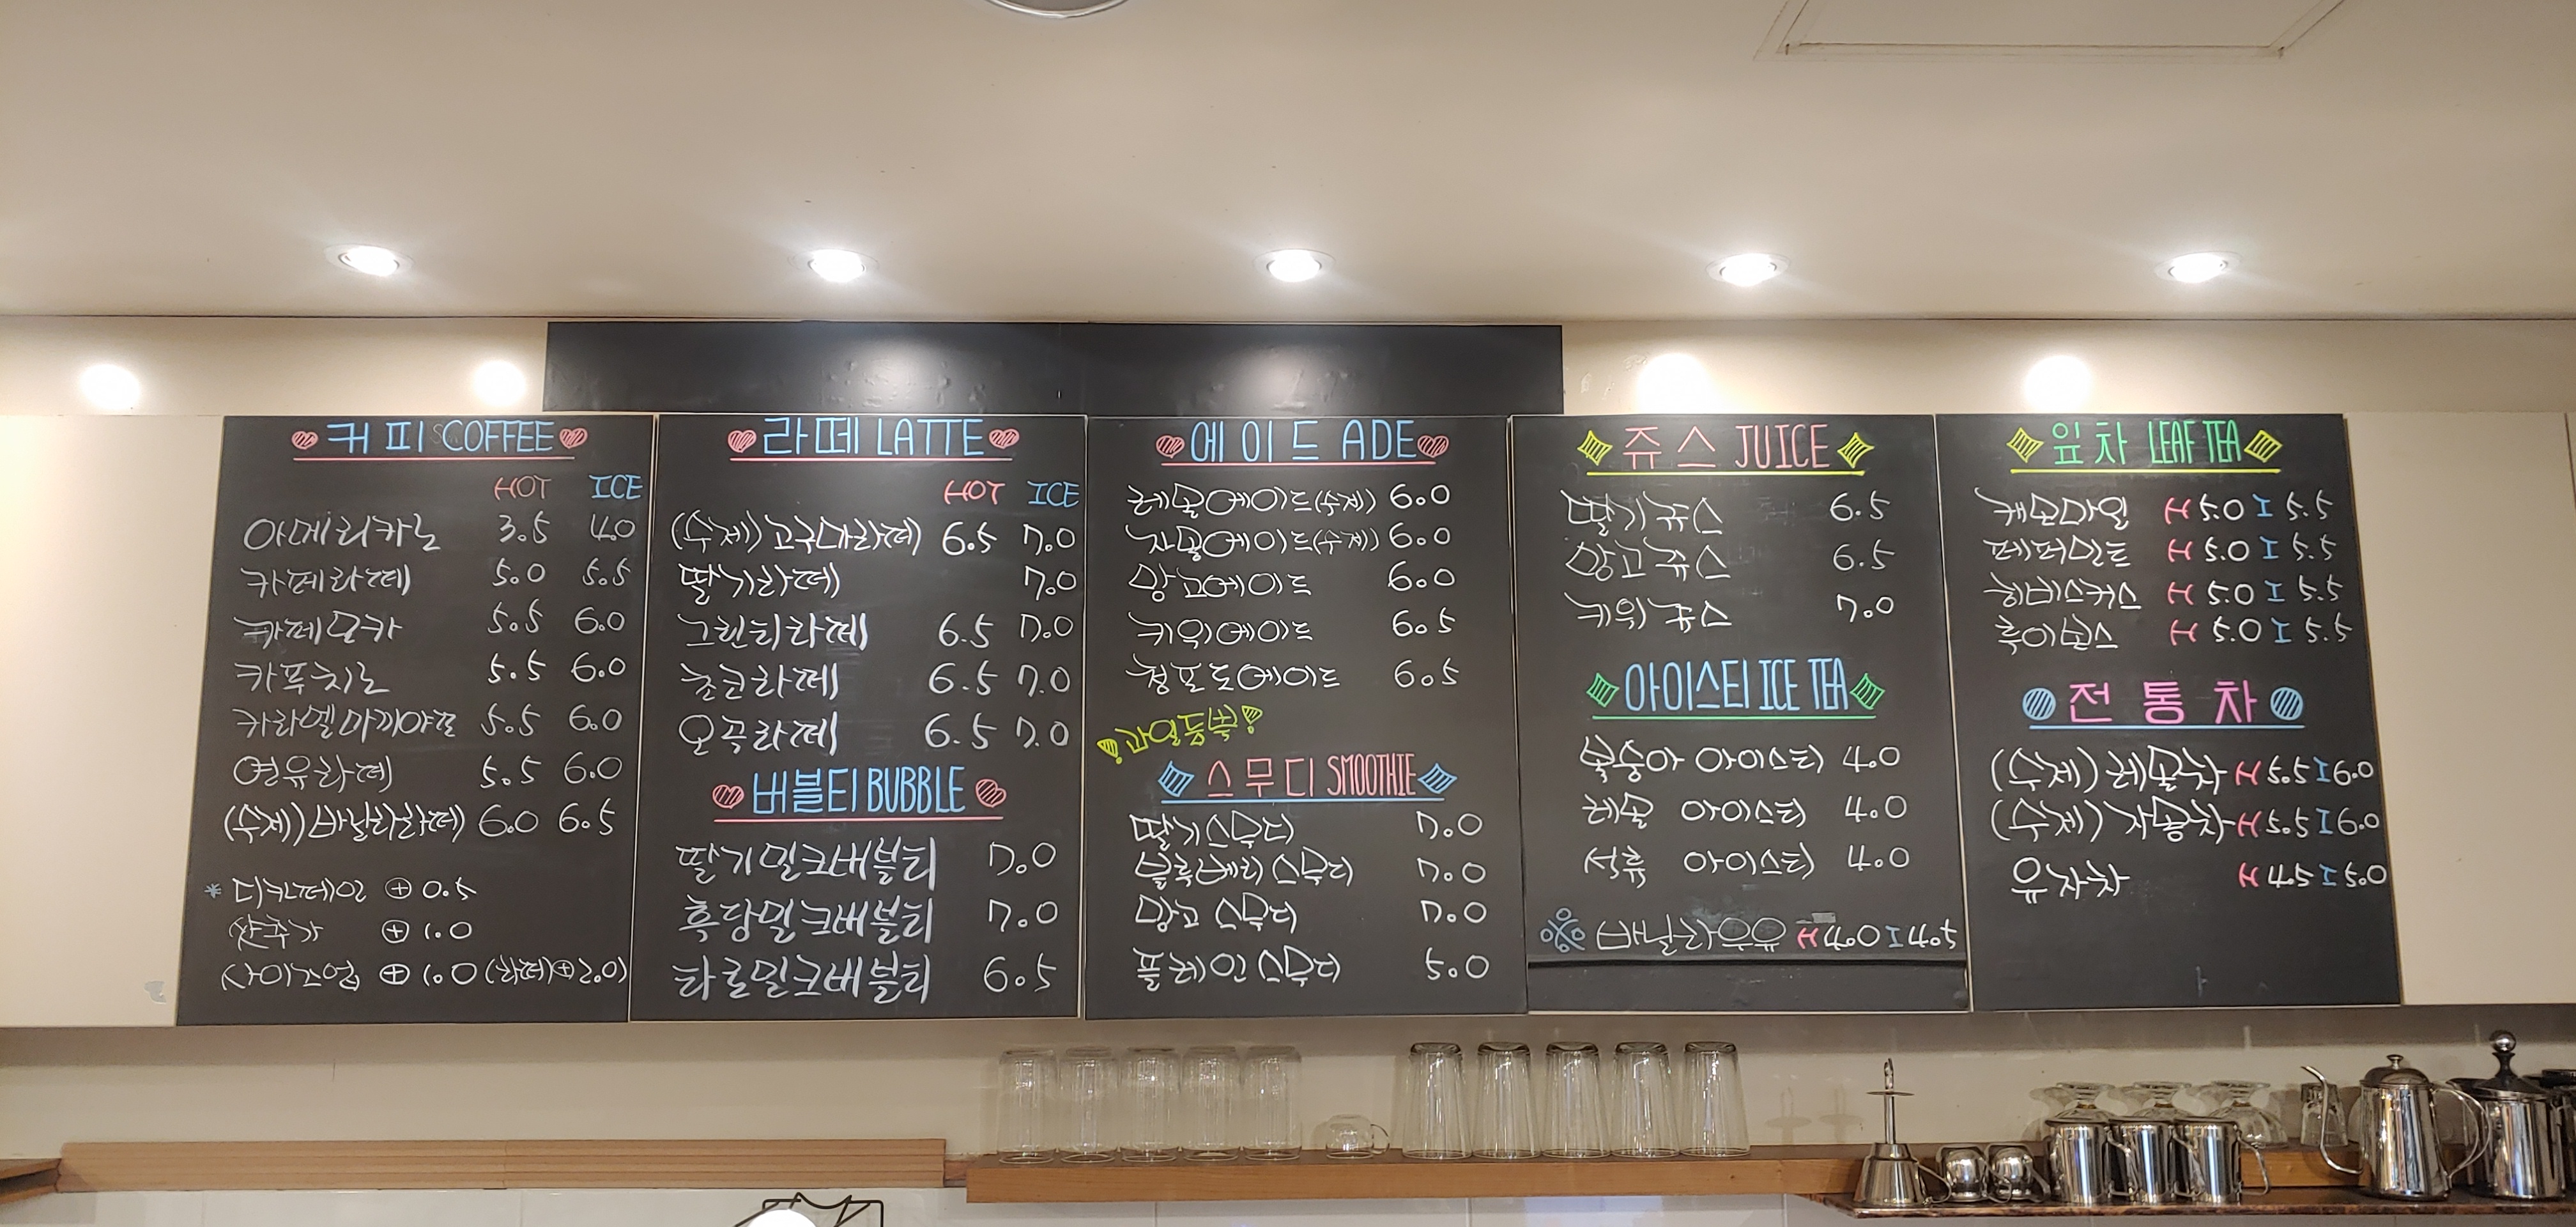 커피 COFFEE
HOT ICE
아메리카노 3.5 4.0
카페라떼 5.0 5.5
카페모카 5.5 6.0
카푸치노 5.5 6.0
카라멜마끼아또 5.5 6.0
연유라떼 5.5 6.0
(수제)바닐라라떼 6.0 6.5
* 디카페인 ⊕ 0.5
샷추가 ⊕ 1.0
사이즈업 ⊕ 1.0 (라떼⊕2.0)
라떼 LATTE
HOT ICE
(수제)고구마라떼 6.5 7.0
딸기라떼 7.0
그린티라떼 6.5 7.0
초코라떼 6.5 7.0
오곡라떼 6.5 7.0
버블티 BUBBLE
딸기밀크버블티 7.0
흑당밀크버블티 7.0
타로밀크버블티 6.5
에이드 ADE
레몬에이드(수제) 6.0
자몽에이드(수제) 6.0
망고에이드 6.0
키위에이드 6.5
청포도에이드 6.5
과일듬뿍!
스무디 SMOOTHIE
딸기스무디 7.0
블루베리스무디 7.0
망고 스무디 7.0
플레인스무디 5.0
쥬스 JUICE
딸기쥬스 6.5
망고쥬스 6.5
키위쥬스 7.0
아이스티 ICE TEA
복숭아 아이스티 4.0
레몬 아이스티 4.0
석류 아이스티 4.0
※ 바닐라우유 H 4.0 I 4.5
잎차 LEAF TEA
캐모마일 H 5.0 I 5.5
페퍼민트 H 5.0 I 5.5
히비스커스 H 5.0 I 5.5
루이보스 H 5.0 I 5.5
전통차
(수제)레몬차 H 5.5 I 6.0
(수제)자몽차 H 5.5 I 6.0
유자차 H 4.5 I 5.0